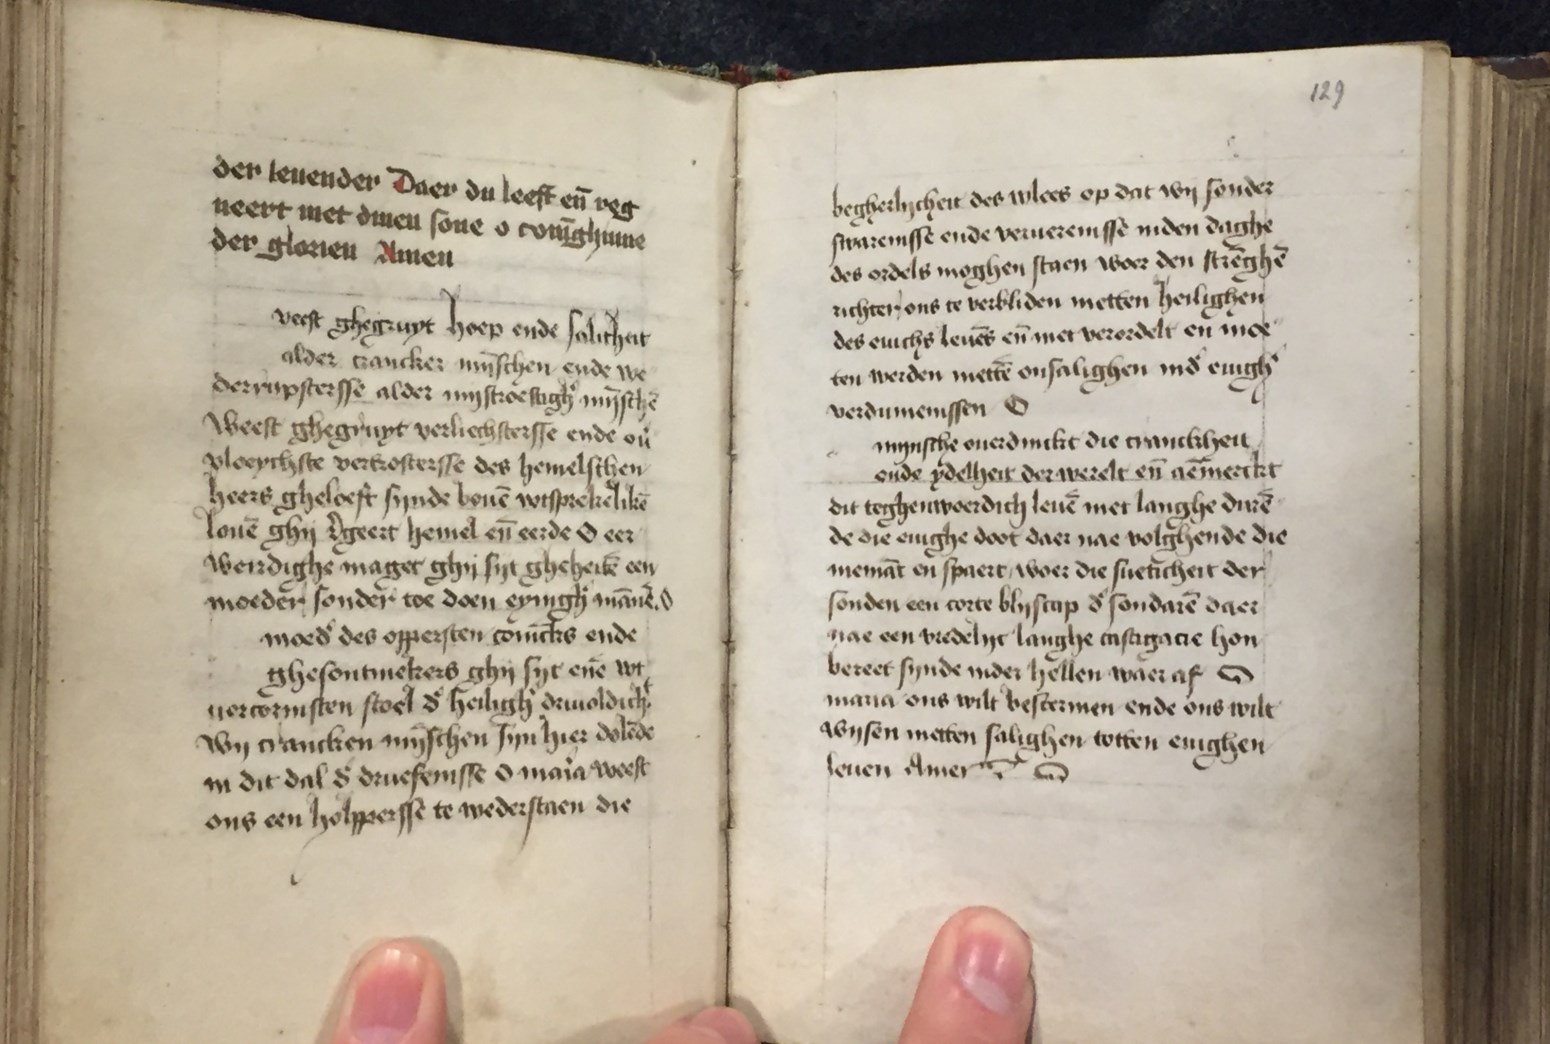 der leuender Daer du leeft en̄ reg
neert met dinen sone o conīghinne
der glorien Amen
veest ghegruyt hoep ende salicheit
alder crancker mīschen ende we
alder mystroestigh mīschē
Weest ghegruyt verliechstersse ende ou
vloeychste vertrostersse des hemelschen
heers gheloeft synde bouē wtsprekelikē
louē ghij Rgeert hemel en̄ eerde O eer
werdighe maget ghij syt gheheitē een
moeder sonder toe doen eynigh mānē O
moed des oppersten conīcks ende
ghesontmekers ghij syt enē wt
uercornisten stoel d heiligh driuoldich
Wij crancken mīschen syn hier dolēde
in dit dal d druefenisse O maria weest
ons een holppersse te wederstaen die
129
begherlycheit des vlees op dat wij sonder
swarenisse ende veruerenisse inden daghe
des ordels moghen staen woer den strēghē
richter ons te verbliden metten heilighen
des ewichs leuēs en̄ niet verordelt en moe
ten werden mettē onsalighen ind ewigh
verdumenissen O
mynsche ouerdinckt die cranckheit
ende ydelheit der werelt en̄ aēmerckt
dit teghenwoerdich leuē niet langhe durē
de die ewighe doot daer nae volghende die
niemāt en spaert woer die sueticheit der
sonden een corte blyscap d sondarē daer
nae een vredelyc langhe castigacie hon
bereet synde inder hellen waer af O
maria ons wilt bescermen ende ons wilt
wysen metten salighen totten ewighen
leuen Amen